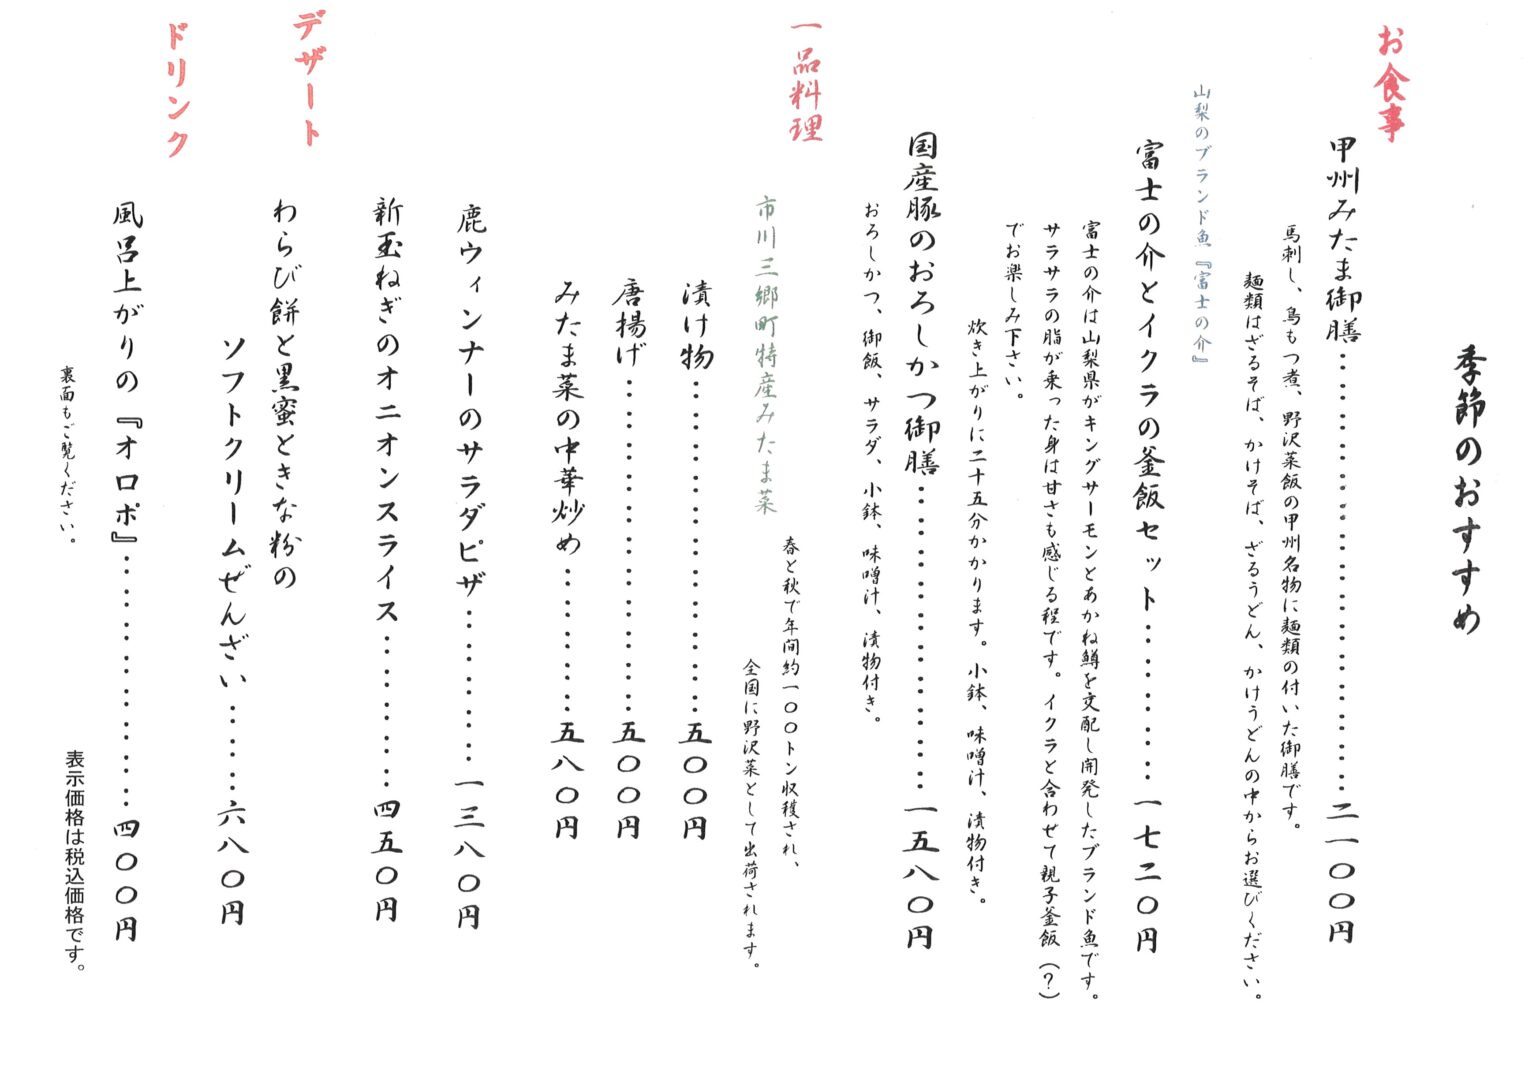 季節のおすすめ
お食事
甲州みたま御膳・・・・・・・・・・・・・・・・・・・・二一〇〇円
馬刺し、鳥もつ煮、野沢菜飯の甲州名物に麺類の付いた御膳です。
麺類はざるそば、かけそば、ざるうどん、かけうどんの中からお選びください。
山梨のブランド魚『富士の介』
富士の介とイクラの釜飯セット・・・・・・・・一七二〇円
富士の介は山梨県がキングサーモンとあかね鱒を交配し開発したブランド魚です。
サラサラの脂が乗った身は甘さも感じる程です。イクラと合わせて親子釜飯(?)
でお楽しみ下さい。
炊き上がりに二十五分かかります。小鉢、味噌汁、漬物付き。
国産豚のおろしかつ御膳・・・・・・・・・・・・・・一五八〇円
おろしかつ、御飯、サラダ、小鉢、味噌汁、漬物付き。
一品料理
市川三郷町特産みたま菜
春と秋で年間約一〇〇トン収穫され、
全国に野沢菜として出荷されます。
漬け物・・・・・・・・・・・・・・・五〇〇円
唐揚げ・・・・・・・・・・・・・・・五〇〇円
みたま菜の中華炒め・・・・・・・五八〇円
鹿ウィンナーのサラダピザ・・・・・・・一三八〇円
新玉ねぎのオニオンスライス・・・・・・・四五〇円
デザート
わらび餅と黒蜜ときな粉の
ソフトクリームぜんざい・・・・・六八〇円
ドリンク
風呂上がりの『オロポ』・・・・・・・・・・・・四〇〇円
裏面もご覧ください。
表示価格は税込価格です。